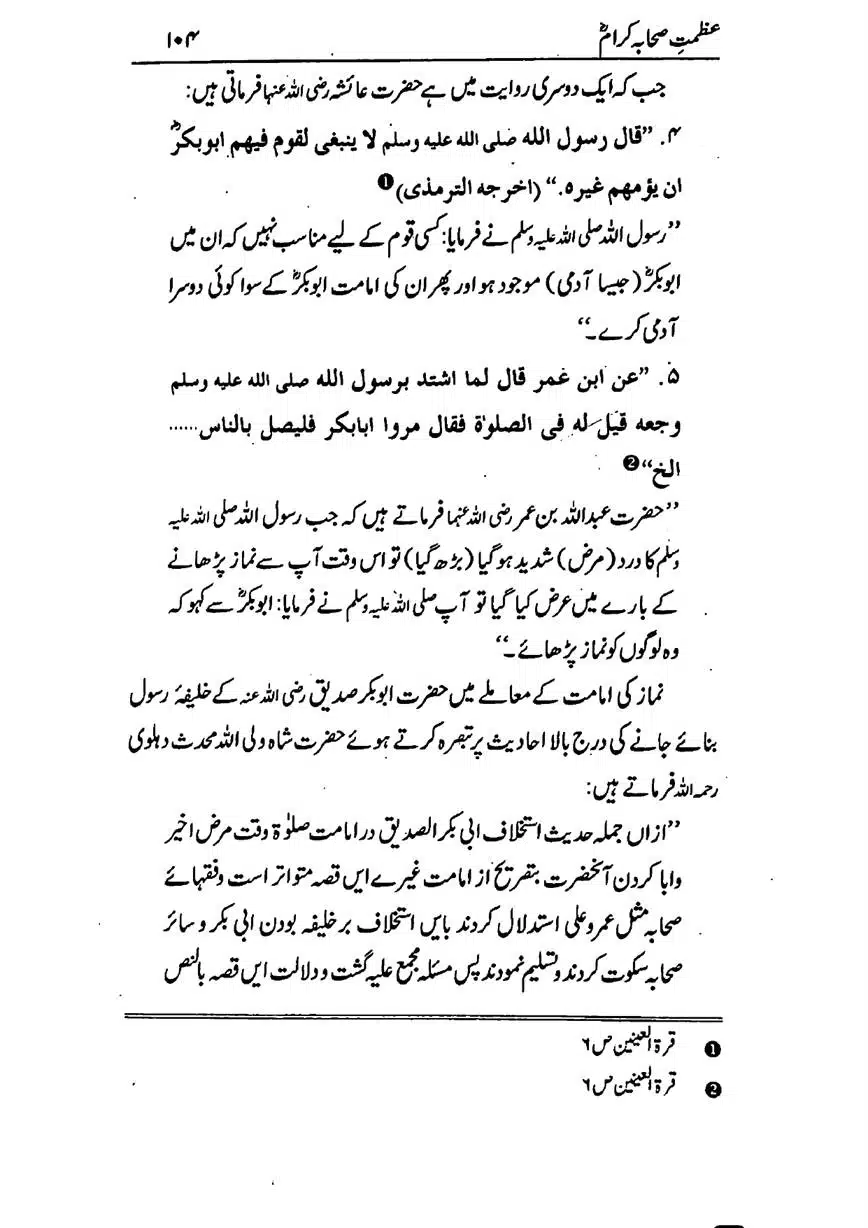 عظمتِ صحابہ کرامؓ ۱۰۴
جب کہ ایک دوسری روایت میں ہے حضرت عائشہ رضی اللہ عنہا فرماتی ہیں:
۴. ”قال رسول الله صلی الله علیه وسلم لا ینبغی لقوم فیهم ابوبکرؓ
ان یؤمهم غیره.“ (اخرجه الترمذی)❶
”رسول اللہ صلی اللہ علیہ وسلم نے فرمایا: کسی قوم کے لیے مناسب نہیں کہ ان میں
ابوبکرؓ (جیسا آدمی) موجود ہو اور پھر ان کی امامت ابوبکرؓ کے سوا کوئی دوسرا
آدمی کرے۔“
۵. ”عن ابن عمر قال لما اشتد برسول الله صلی الله علیه وسلم
وجعه قیل له فی الصلوٰة فقال مروا ابابکر فلیصل بالناس......
الخ“❷
”حضرت عبداللہ بن عمر رضی اللہ عنہما فرماتے ہیں کہ جب رسول اللہ صلی اللہ علیہ
وسلم کا درد (مرض) شدید ہو گیا (بڑھ گیا) تو اس وقت آپ سے نماز پڑھانے
کے بارے میں عرض کیا گیا تو آپ صلی اللہ علیہ وسلم نے فرمایا: ابوبکرؓ سے کہو کہ
وہ لوگوں کو نماز پڑھائے۔“
نماز کی امامت کے معاملے میں حضرت ابوبکر صدیق رضی اللہ عنہ کے خلیفۂ رسول
بنائے جانے کی درج بالا احادیث پر تبصرہ کرتے ہوئے حضرت شاہ ولی اللہ محدث دہلوی
رحمہ اللہ فرماتے ہیں:
”ازاں جملہ حدیث استخلاف ابی بکر الصدیق در امامت صلوٰۃ وقت مرض اخیر
وابا کردن آنحضرت بتصریح از امامت غیرے ایں قصہ متواتر است وفقہائے
صحابہ مثل عمر وعلی استدلال کردند بایں استخلاف بر خلیفہ بودن ابی بکر و سائر
صحابہ سکوت کردند وتسلیم نمودند پس مسئلہ مجمع علیہ گشت و دلالت ایں قصہ بالنص
❶ قرۃ العینین ص ٦
❷ قرۃ العینین ص ٦